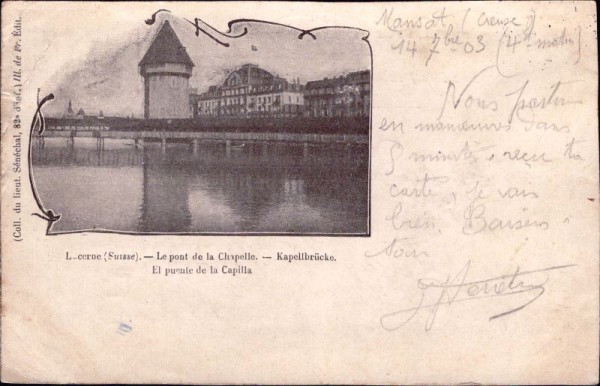 (Coll. du lieut. Sénéchal, 82e d'inf.) Ill. de Pr. Edit.
L..cerne (Suisse). — Le pont de la Chapelle. — Kapellbrücke.
El puente de la Capilla
Mansat (Creuse)
14 7bre 03 (4h matin)
Nous partons
en manœuvres dans
5 minutes. reçu ta
carte, je vais
bien. Baisers
tous